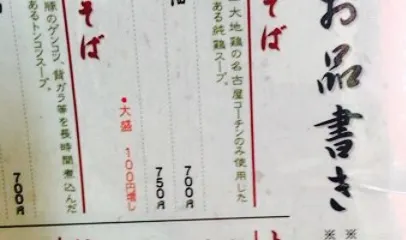 お品書き
※
※
そば
大地鶏の名古屋コーチンのみ使用した
ある純鶏スープ。
油
700円
750円
●大盛 100円増し
そば
豚のゲンコツ、背ガラ等を長時間煮込んだ
あるトンコツスープ。
700円